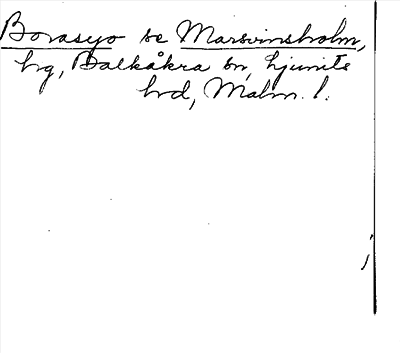 Borasyo se Marsvinsholm,
hg, Balkåkra sn, Ljunits
hrd, Malm. l.